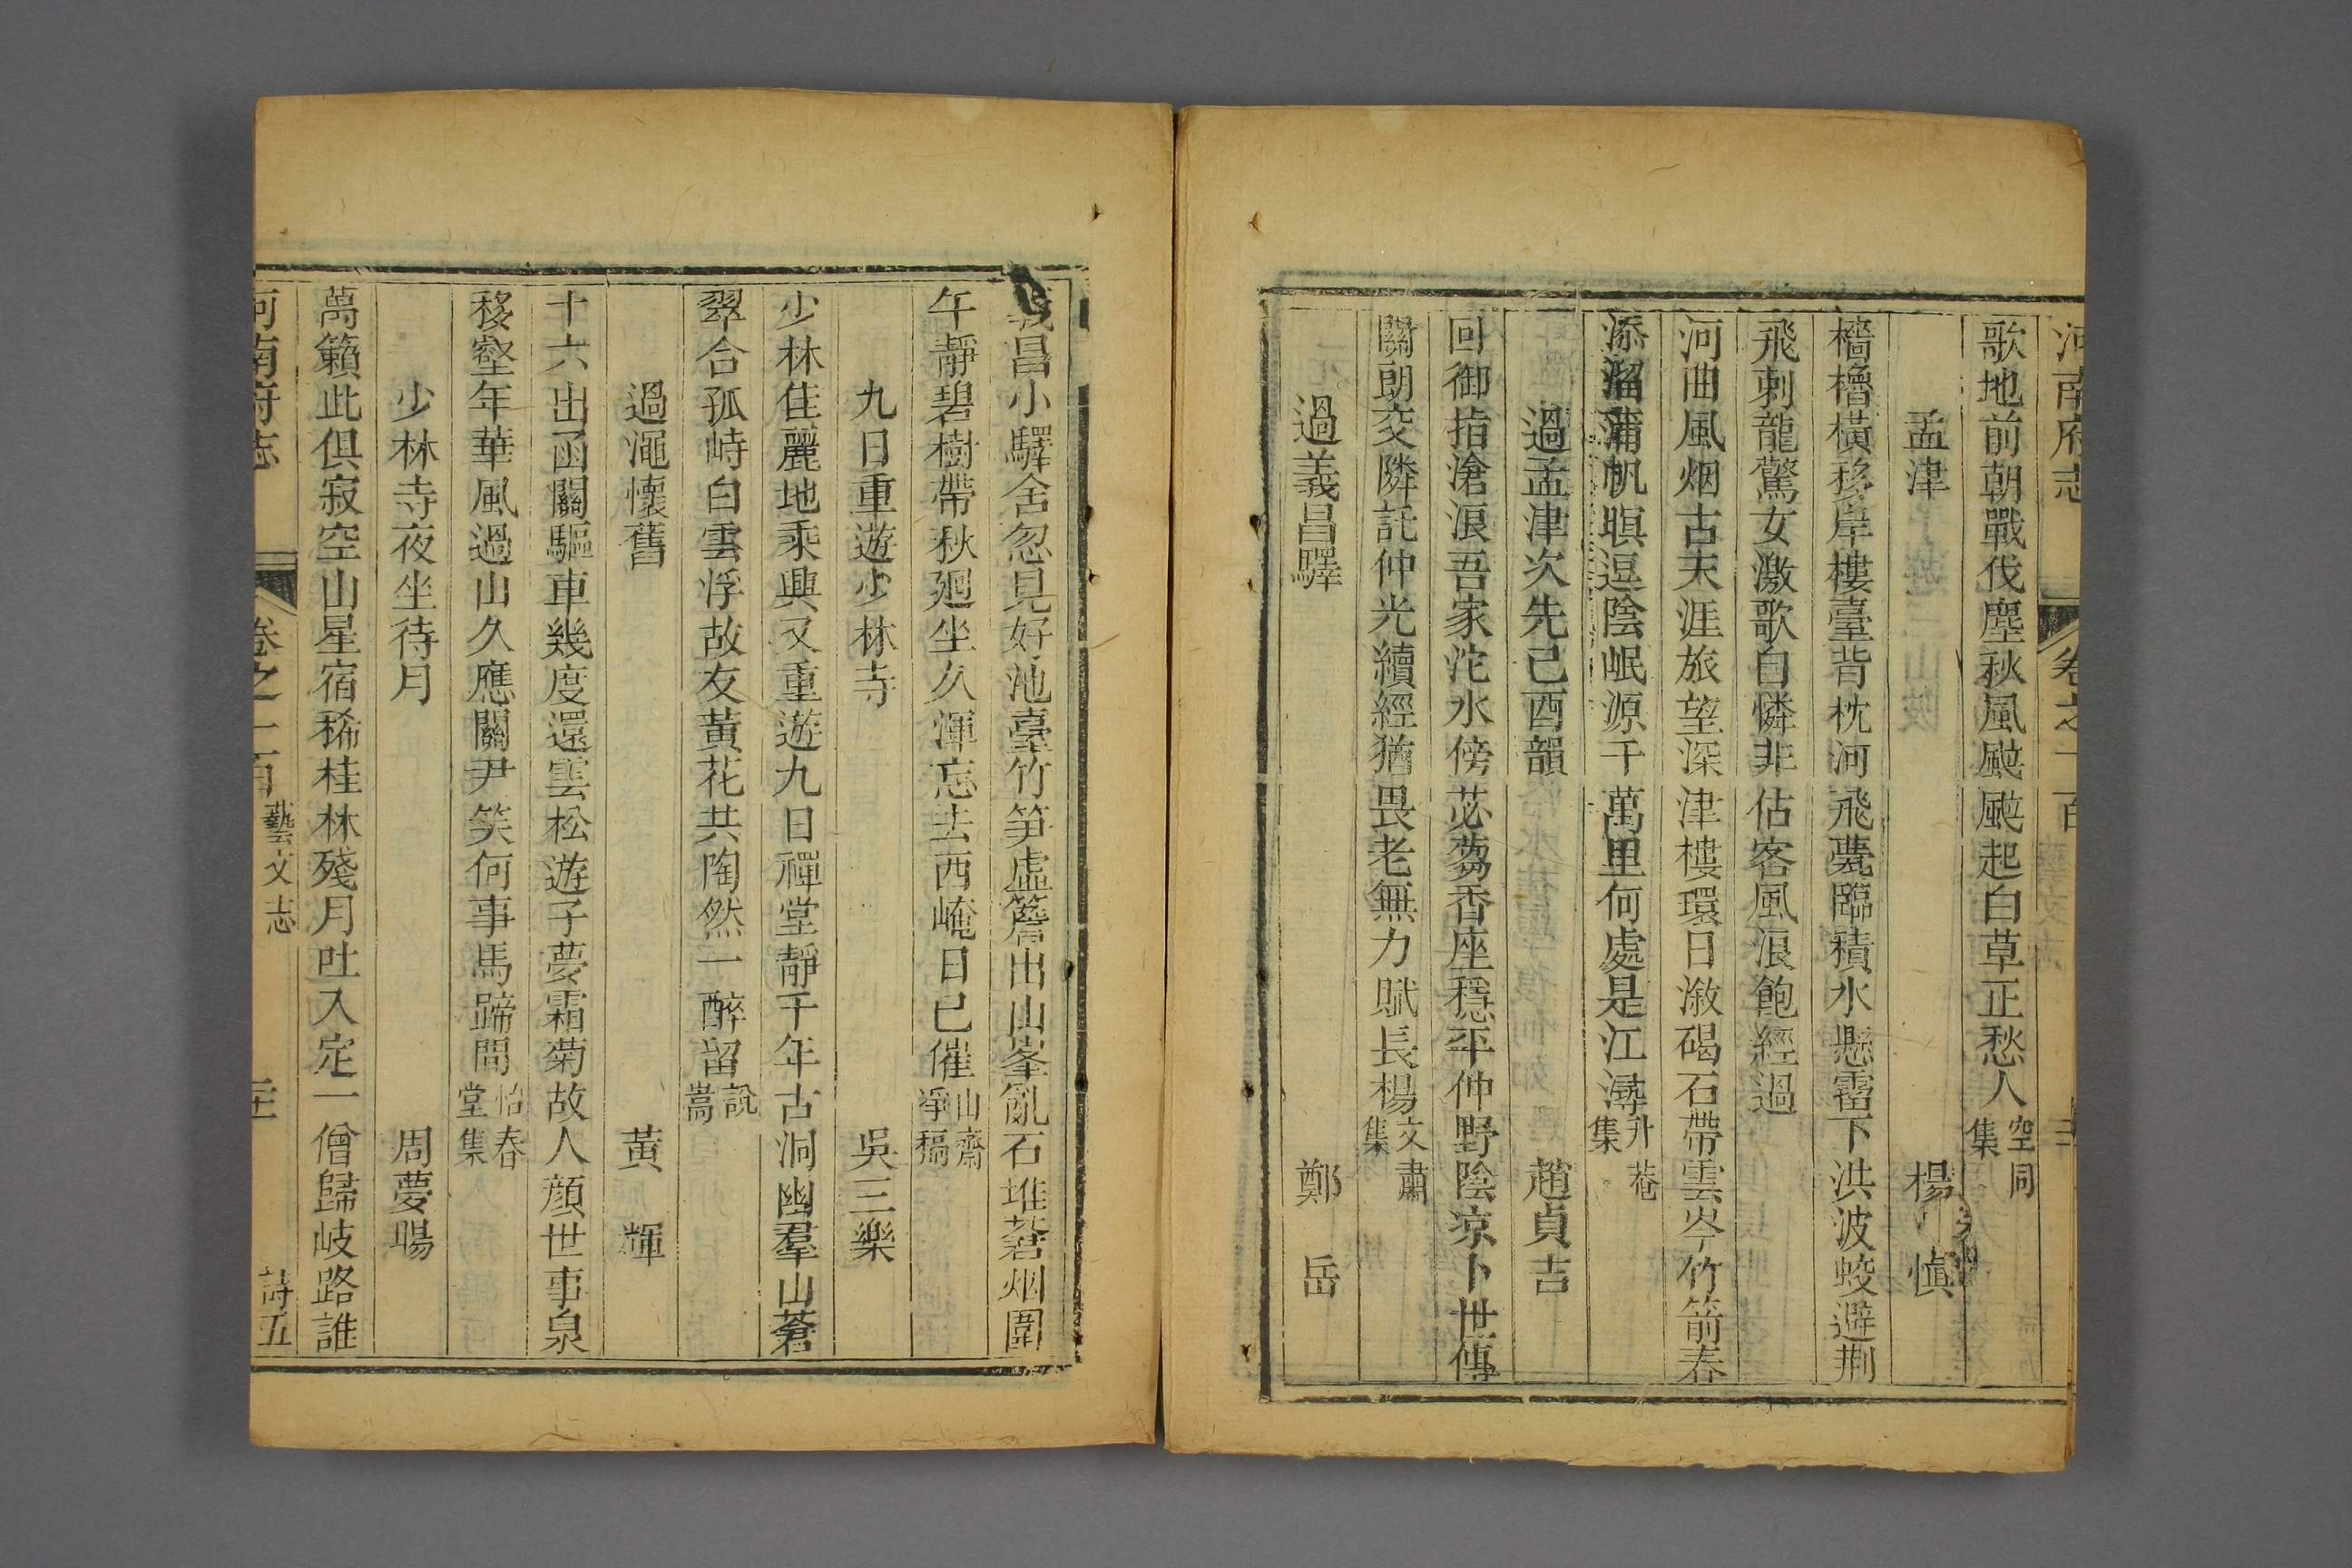 河南府志 卷之一百
歌地前朝戰伐塵秋風颴颴起白草正愁人空同集
孟津 楊慎
檣櫓橫移岸樓臺背枕河飛甍臨積水懸霤下洪波蛟避荆
飛刺龍驚女激歌自憐非估客風浪飽經過
河曲風烟古天涯旅望深津樓環日漵碣石帶雲岑竹箭春
添溜蒲帆暝逗陰岷源千萬里何處是江潯升菴集
過孟津次先己酉韻 趙貞吉
回御指滄浪吾家沱水傍苾蒭香座穩平仲野陰凉卜世傳
關朗交隣託仲光續經猶畏老無力賦長楊文肅集
過義昌驛 鄭岳
義昌小驛舍忽見好池臺竹笋虛簷出山峯亂石堆蒼烟圍
午靜碧樹帶秋廻坐久渾忘去西崦日已催山齋淨稿
九日重遊少林寺 吳三樂
少林佳麗地乘興又重遊九日禪堂靜千年古洞幽羣山蒼
翠合孤峙白雲浮故友黃花共陶然一醉留說嵩
過澠懷舊 黃輝
十六出函關驅車幾度還雲松遊子夢霜菊故人顔世事泉
移壑年華風過山久應關尹笑何事馬蹄間怡春堂集
少林寺夜坐待月 周夢暘
萬籟此俱寂空山星宿稀桂林殘月吐入定一僧歸岐路誰
河南府志 卷之一百 藝文志 詩五